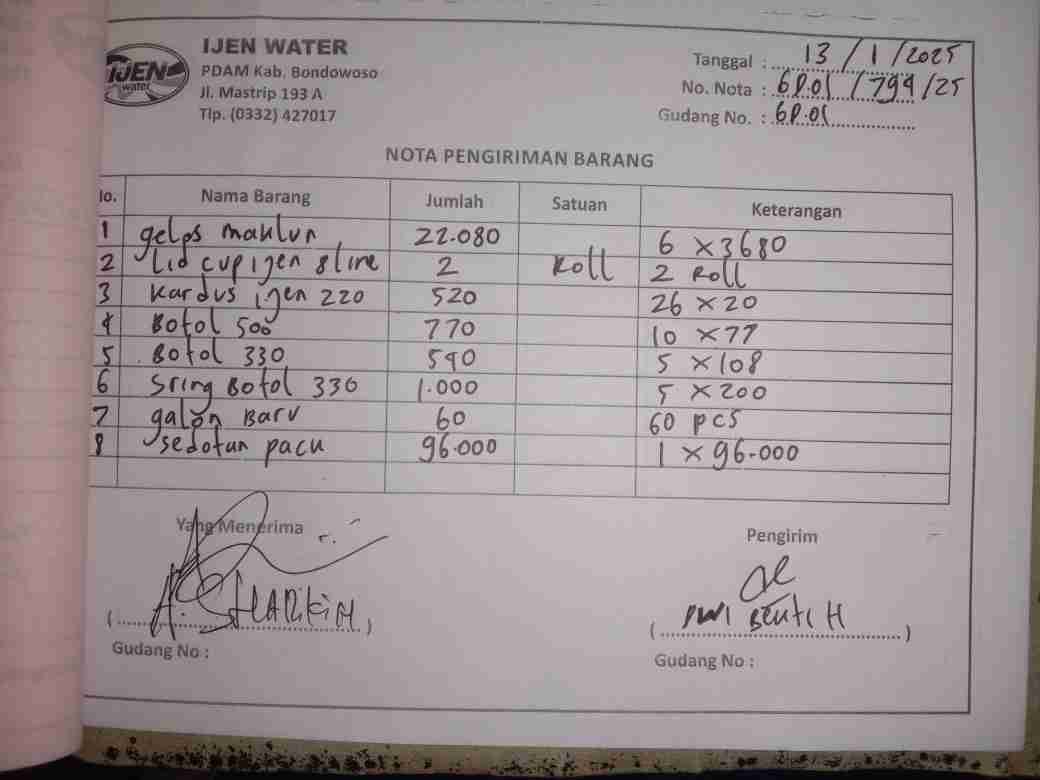 IJEN water
IJEN WATER
PDAM Kab. Bondowoso
Jl. Mastrip 193 A
Tlp. (0332) 427017
Tanggal : 13 / 1 / 2025
No. Nota : 6P.01 / 799 / 25
Gudang No. : 6P.01
NOTA PENGIRIMAN BARANG
No. Nama Barang Jumlah Satuan Keterangan
1 gelas maklun 22.080 6 x 3680
2 Lid cup ijen 8 line 2 Roll 2 Roll
3 Kardus ijen 220 520 26 x 20
4 Botol 500 770 10 x 77
5 Botol 330 540 5 x 108
6 Sring Botol 330 1.000 5 x 200
7 galon Baru 60 60 pcs
8 sedotan pack 96.000 1 x 96.000
Yang Menerima Pengirim
Gudang No : Gudang No :